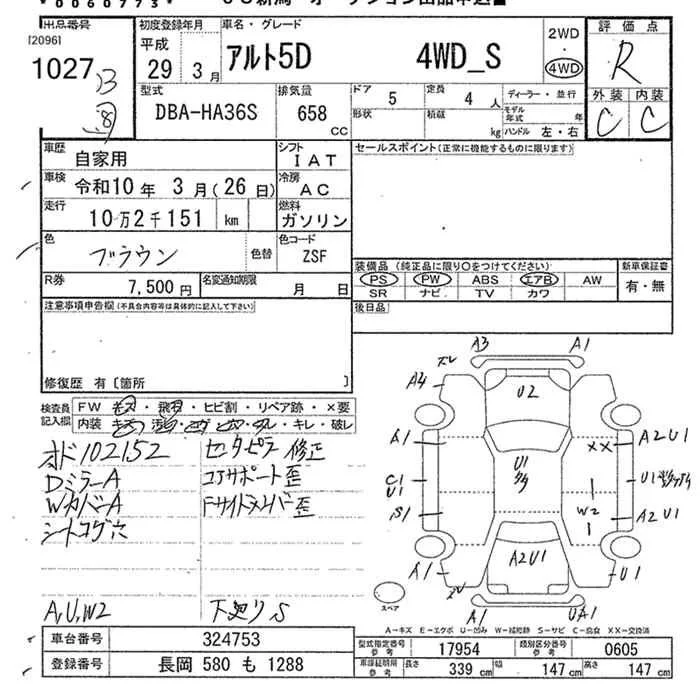 *0060773*
出品番号
[2096]
1027
初度登録年月
平成
29年 3月
車名・グレード
アルト5D 4WD_S
2WD
・
4WD
評価点
R
外装 内装
C C
型式
DBA-HA36S
排気量
658
CC
ドア
5
定員
4 人
形状
積載
kg
ディーラー・並行
モデル年式 年
ハンドル 左・右
車歴
自家用
シフト
IAT
車検
令和10年 3月(26日)
冷房
AC
走行
10万2千151 km
燃料
ガソリン
色
ブラウン
色替
色コード
ZSF
R券
7,500円
名変通知期限
月 日
セールスポイント(正常に機能するものに限ります)
装備品(純正品に限り○をつけてください)
PS PW ABS エアB AW
SR ナビ TV カワ
新車保証書
有・無
後日品
注意事項申告欄(不具合内容等は具体的に記入して下さい)
修復歴 有〔箇所 〕
検査員記入欄
FW キズ・飛石・ヒビ割・リペア跡・×要
内装 キズ・汚れ・コゲ・穴・スレ・キレ・破レ
オド102152
Dミラー A
Wカバー A
シートコゲ穴
センタピラ 修正
コアサポート歪
Fサイドメンバー歪
A,U,W2
下廻りS
A3 A1
A4
U2
A1
XX
A2 U1
C1
U1
U1
多
U1
S1
W2
A2 U1
A2U1
A1
U1
A1
UA1
スペア
A-キズ E-エクボ U-凹み W-補修跡 S-サビ C-腐食 XX-交換済
車台番号
324753
登録番号
長岡 580 も 1288
型式指定番号
参考
17954
類別区分番号
参考
0605
車検証明用
参考
長さ 339 cm
幅 147 cm
高さ 147 cm